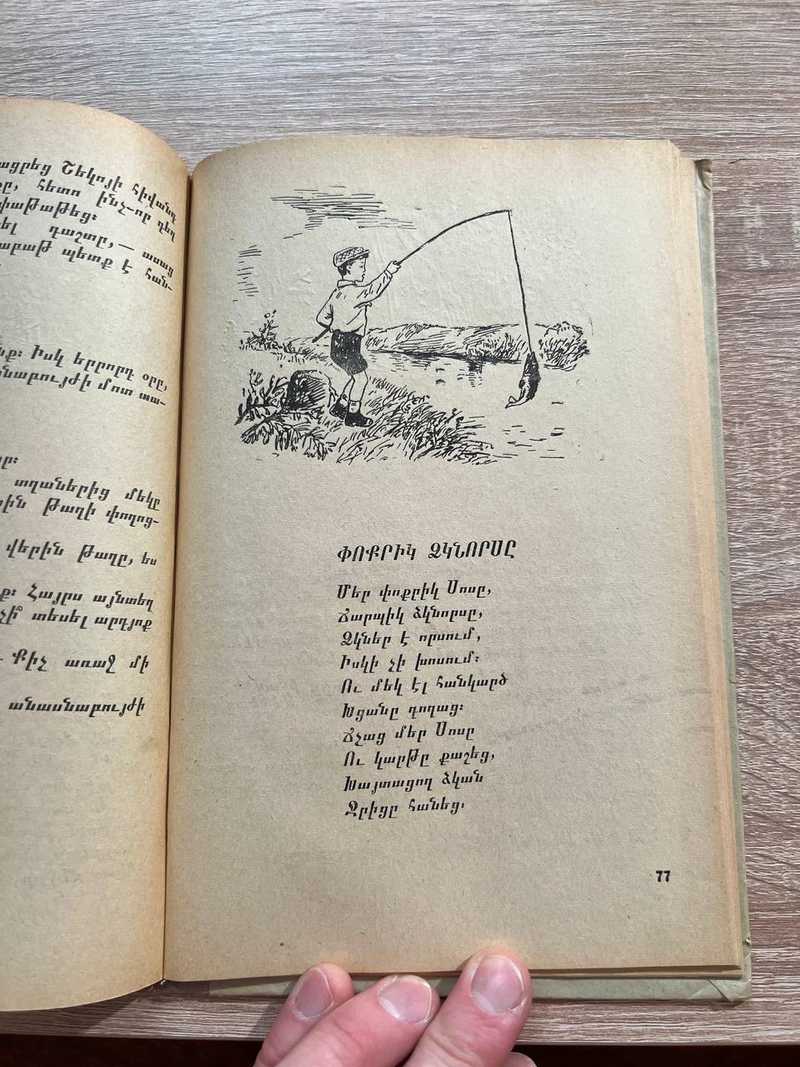 ացրեց Շեկոյի հիվանդ
ը, հետո ինչ-որ դեղ
փաթաթեց։
ել դաշտը,— ասաց
արաթ պետք է հան-
ք։ Իսկ երրորդ օրը,
նաբույժի մոտ տա-
ը։
տղաներից մեկը
ին Թաղի փողոց-
վերին թաղը, ես
ք։ Հայրս այնտեղ
չի՞ տեսել արդյոք
— Քիչ առաջ մի
անասնաբույժի
ՓՈՔՐԻԿ ՁԿՆՈՐՍԸ
Մեր փոքրիկ Սոսը,
Ճարպիկ ձկնորսը,
Ձկներ է որսում,
Իսկի չի խոսում։
Ու մեկ էլ հանկարծ
Խցանը դողաց։
Ճչաց մեր Սոսը
Ու կարթը քաշեց,
Խայտացող ձկան
Ջրիցը հանեց.
77